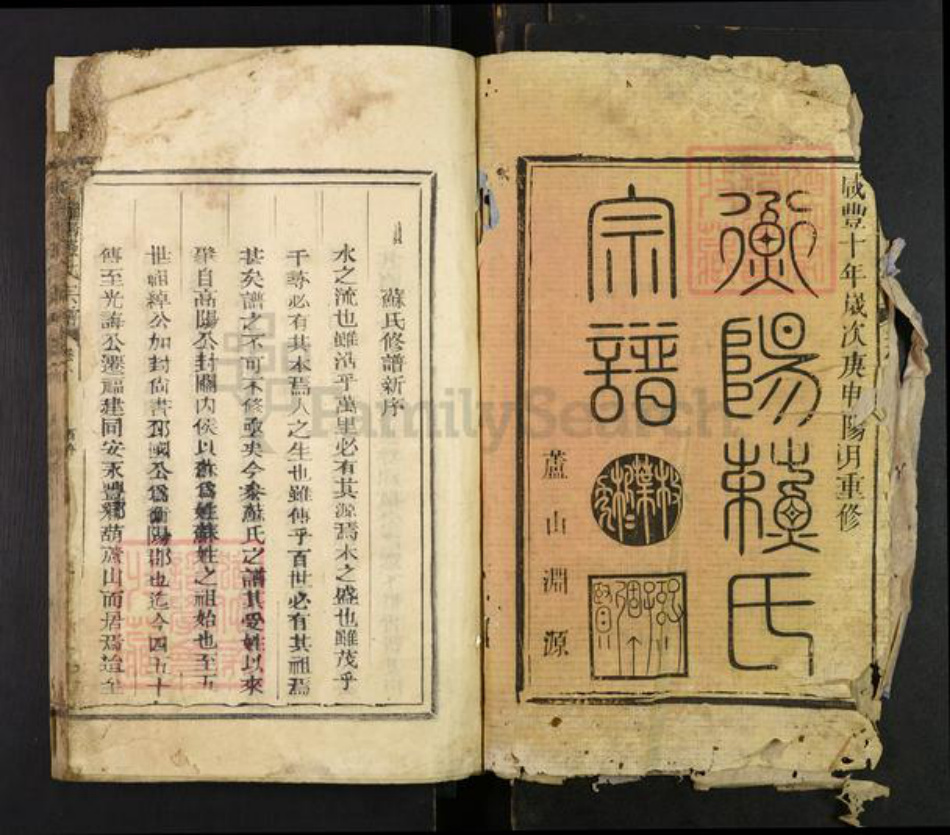 咸豐十年歲次庚申陽月重修
衡陽蘇氏
宗譜
蘆山淵源
蘇氏修譜新序
水之流也雖沿乎萬里必有其源焉木之盛也雖茂乎
千尋必有其本焉人之生也雖傳乎百世必有其祖焉
甚矣譜之不可不修也夫今蘇氏之譜其受姓以來
自高陽公封關內侯以蘇爲姓蘇姓之祖始也至五
世祖綽公加封尚書邳國公爲衡陽郡也迄今四五十
傳至光誨公遷福建同安永豐葫蘆山而居焉迨至
FamilySearch